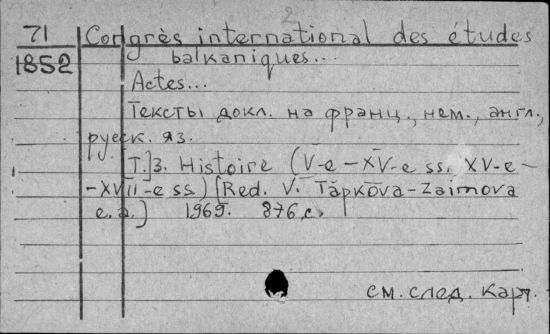 2
71 Congrès international des études
1852 balkaniques...
Actes...
Тексты докл. на франц., нем., англ.,
русск. яз.
[T.]3. Histoire (V-e-XV-e ss. XV-e-
-XVII-e ss.) [Red. V. Tăpkova-Zaimova
e.a.] 1969. 876 с.
см. след. карт.